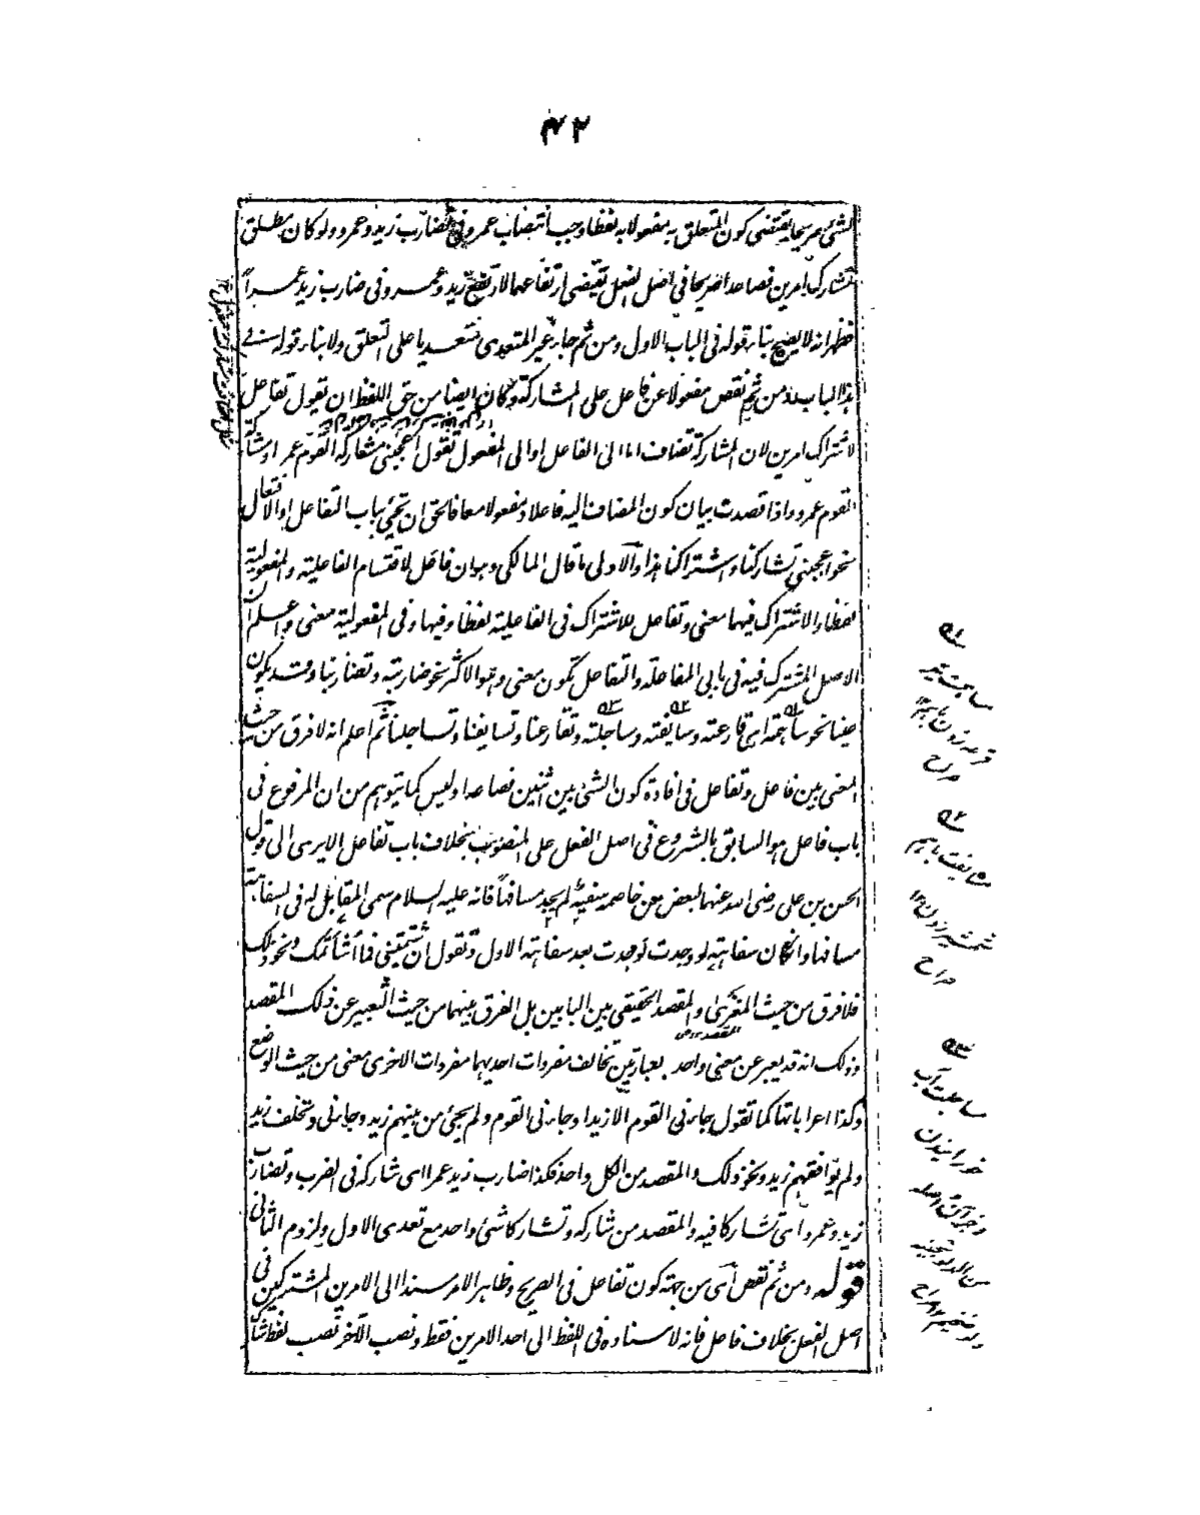 ٤٢
لشئ صريحا يقتضى كون المتعلق به مفعولا به لفظا وجب انتصاب عمرو فى ضارب زيد وعمرو ولو كان مطلق
تشارك امرين فصاعدا صريحا فى اصل الفعل يقتضى ارتفاعهما لارتفع زيد وعمرو فى ضارب زيد عمرا
فظهر انه لا يصح بناء قوله فى الباب الاول ومن ثم جاء غير المتعدى متعديا على التعلق ولا بناء قوله فى
هذا الباب ومن ثم نقص مفعولا عن فاعل على المشاركة وكان ايضا من حق اللفظ ان تقول تفاعل
لاشتراك امرين لان المشاركة تضاف اما الى الفاعل او الى المفعول تقول اعجبنى مشاركة القوم عمرا ومشاركة
القوم عمرو واذا قصدت بيان كون المضاف اليه فاعلا ومفعولا معا فالحق ان تجئ بباب التفاعل او الافتعال
نحو اعجبنى تشاركنا واشتراكنا هذا والاولى ما قال المالكى وهو ان فاعل لاقتسام الفاعلية والمفعولية
لفظا والاشتراك فيهما معنى وتفاعل للاشتراك فى الفاعلية لفظا وفيها وفى المفعولية معنى واعلم ان
الاصل المشترك فيه فى بابى المفاعلة والتفاعل يكون معنى وهو الاكثر نحو ضاربته وتضاربنا وقد يكون
عينا نحو ساهمته اى قارعته وسايفته وساجلته وتقارعنا وتسايفنا وتساجلنا ثم اعلم انه لا فرق من حيث
المعنى بين فاعل وتفاعل فى افادة كون الشئ بين اثنين فصاعدا وليس كما يتوهم من ان المرفوع فى
باب فاعل هو السابق بالشروع فى اصل الفعل على المنصوب بخلاف باب تفاعل الا يرى الى قول
الحسن بن على رضى الله عنهما لبعض من خاصمه سفيه لم يجد مسافها فانه عليه السلام سمى المقابل له فى السفاهة
مسافها وان كان سفاهته لو وجدت لوجدت بعد سفاهته الاول وتقول ان شتمتنى فما اشاتمك ونحو ذلك
فلا فرق من حيث المغزى والمقصد الحقيقى بين البابين بل الفرق بينهما من حيث التعبير عن ذلك المقصد
وذلك انه قد يعبر عن معنى واحد بعبارتين تخالف مفردات احديهما مفردات الاخرى معنى من حيث الوضع
وكذا اعراباتها كما تقول جاءنى القوم الا زيدا وجاءنى القوم ولم يجئ من بينهم زيد وجاءنى وتخلف زيد
ولم يوافقهم زيد ونحو ذلك والمقصد من الكل واحد فكذا ضارب زيد عمرا اى شاركه فى الضرب وتضارب
زيد وعمرو اى تشاركا فيه والمقصد من شاركه وتشاركا شئ واحد مع تعدى الاول ولزوم الثانى
قوله ومن ثم نقص اى من جهة كون تفاعل فى الصريح وظاهر الامر مسندا الى الامرين المشتركين فى
اصل الفعل بخلاف فاعل فانه لاسناده فى اللفظ الى احد الامرين فقط ونصب الآخر نصب لفظ شا